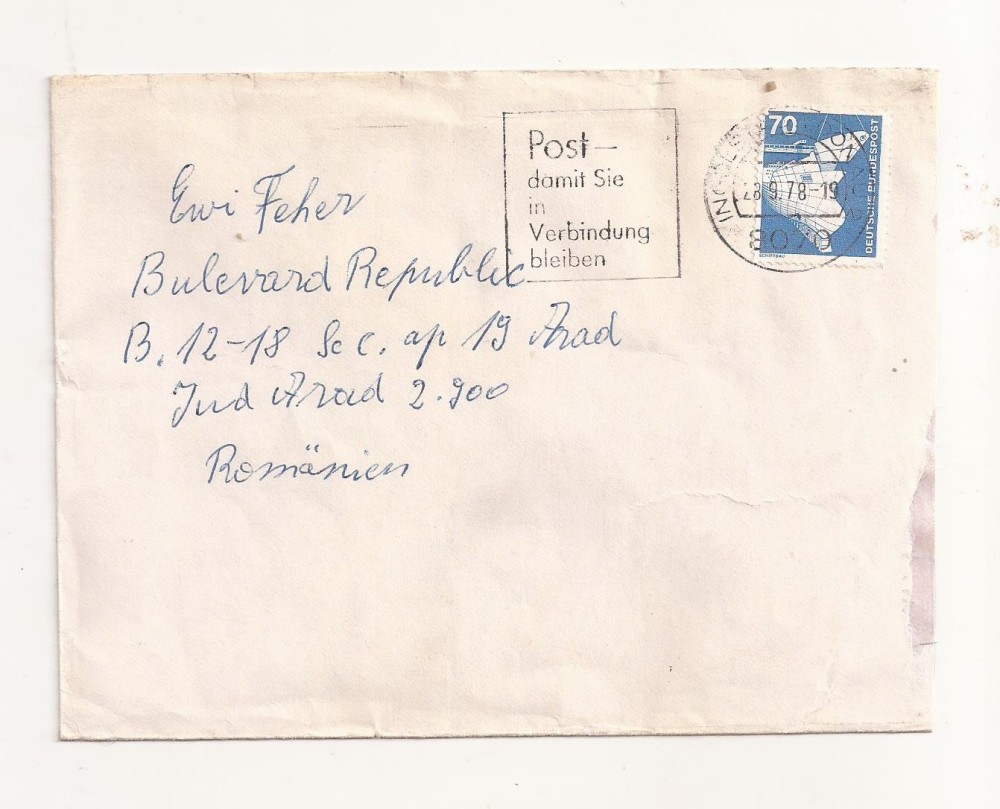 Post—
damit Sie
in
Verbindung
bleiben
70
DEUTSCHE BUNDESPOST
SCHIFFBAU
28.9.78-19
8070
Ewi Feher
Bulevard Republic
B. 12-18 Sc C. ap 19 Arad
Jud Arad 2.900
Romänien